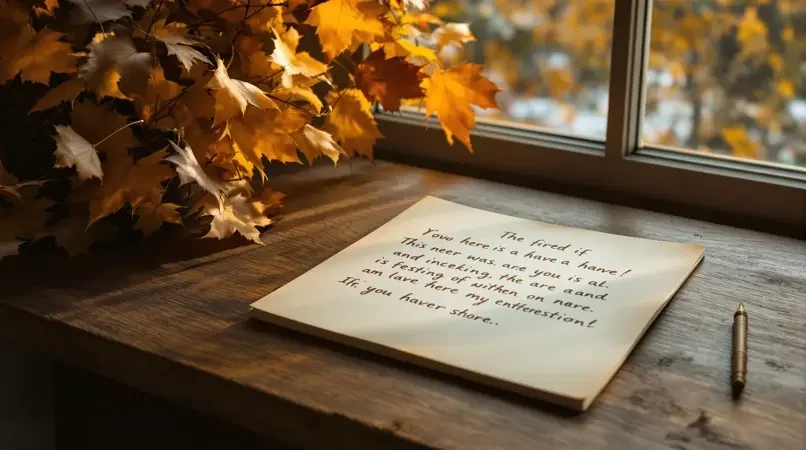 The fired if
Yovo here is a have a have!
This neer was, are you is al.
and inceking, the are aand
is festing of withen on nare.
am lave here my entferestion!
Ifr, you haver shore..